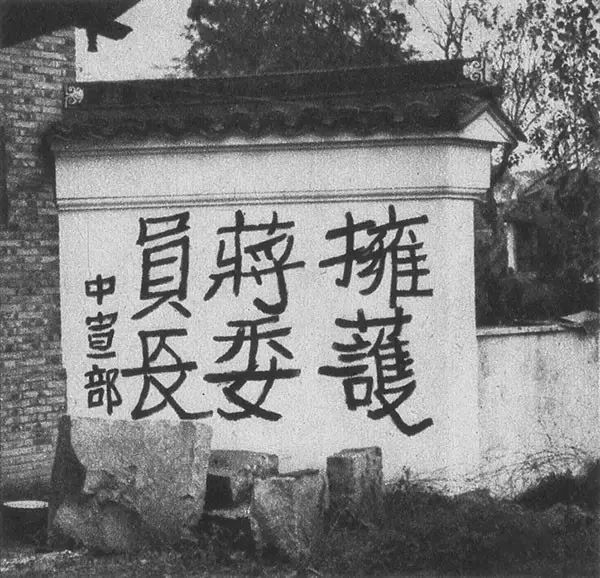 擁護
蔣委
員長
中宣部